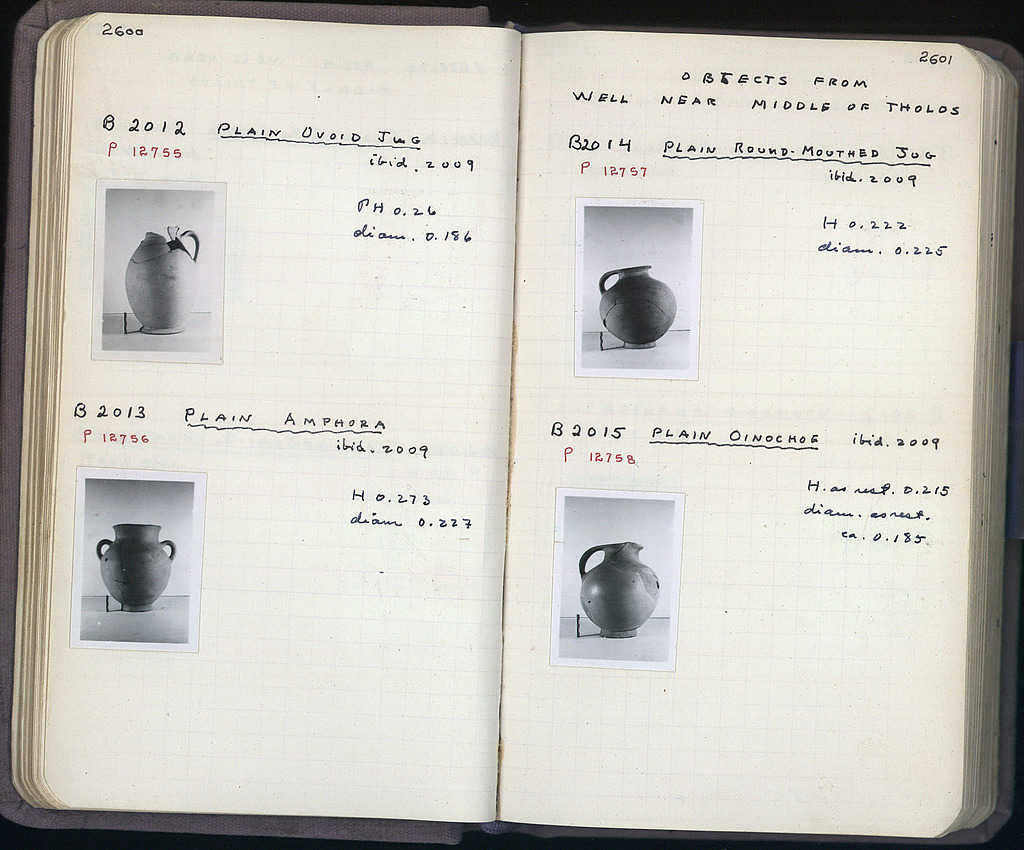 2600
B 2012 PLAIN OVOID JUG
P 12755
ibid. 2009
PH 0.26
diam. 0.186
B 2013 PLAIN AMPHORA
P 12756
ibid. 2009
H 0.273
diam 0.227
2601
OBJECTS FROM
WELL NEAR MIDDLE OF THOLOS
B2014 PLAIN ROUND-MOUTHED JUG
P 12757
ibid. 2009
H 0.222
diam. 0.225
B 2015 PLAIN OINOCHOE ibid. 2009
P 12758
H. as rest. 0.215
diam. as rest.
ca. 0.185